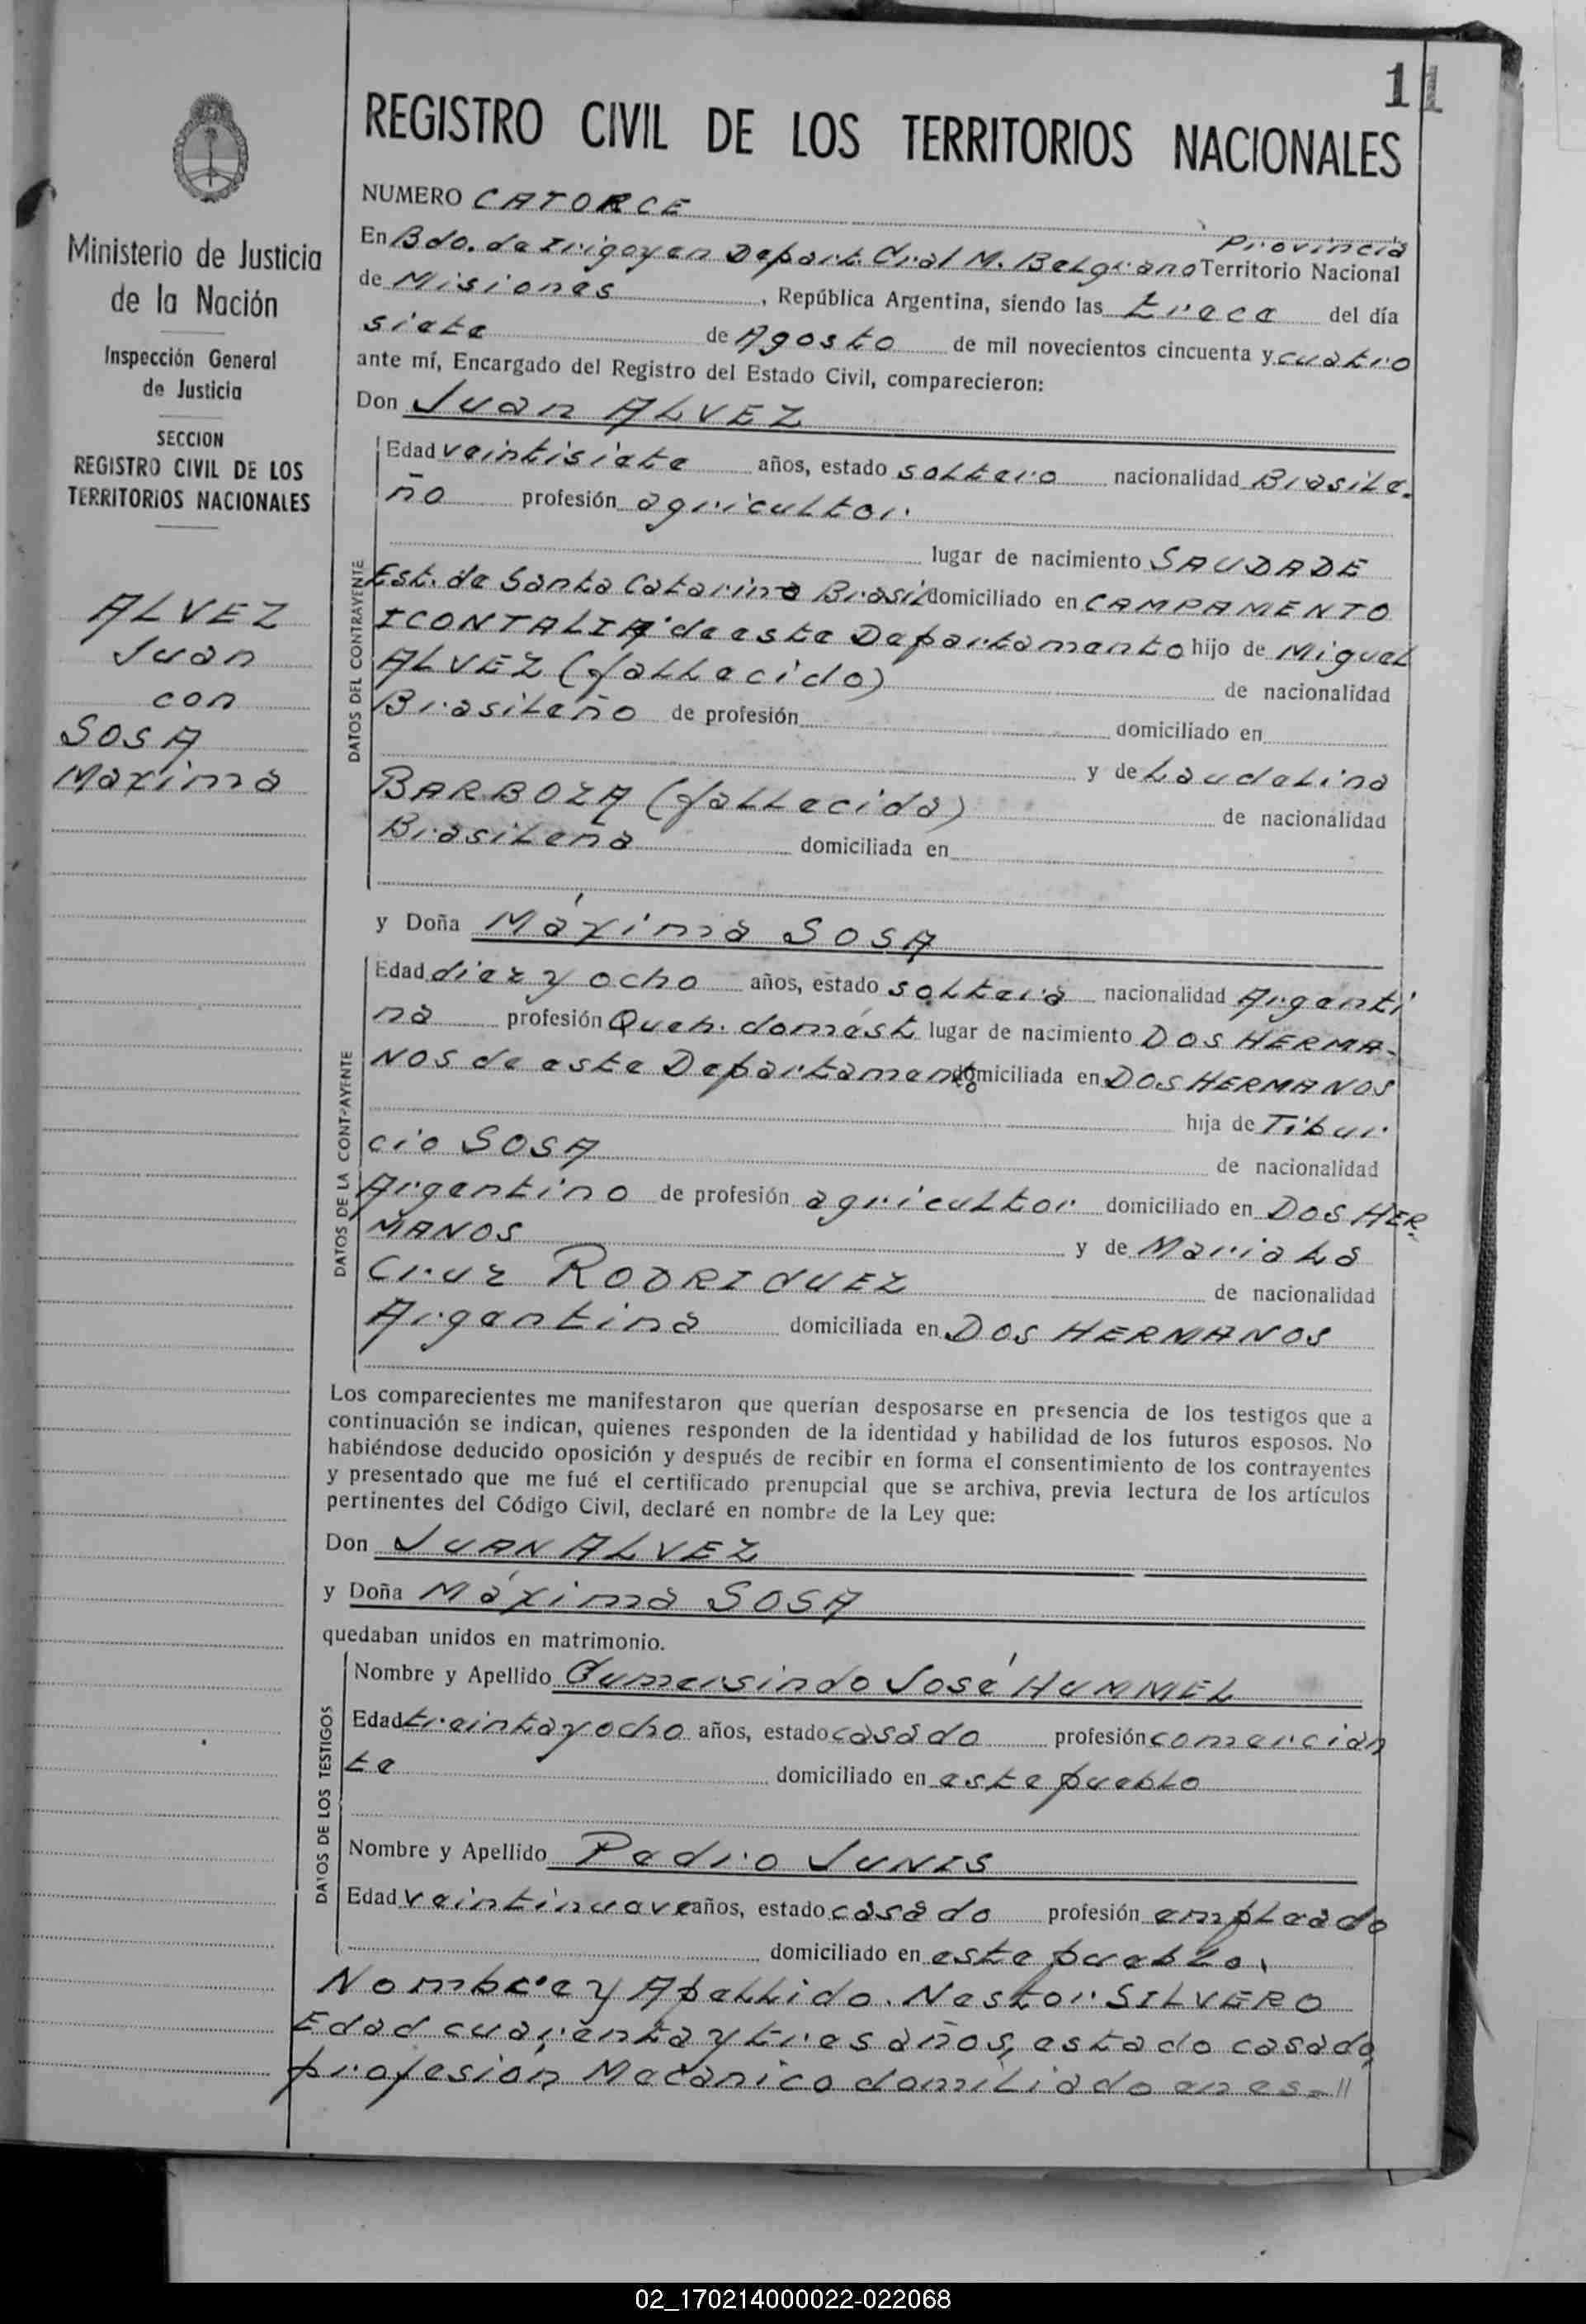 11
Ministerio de Justicia
de la Nación
Inspección General
de Justicia
SECCION
REGISTRO CIVIL DE LOS
TERRITORIOS NACIONALES
ALVEZ
Juan
con
SOSA
Maxima
REGISTRO CIVIL DE LOS TERRITORIOS NACIONALES
NUMERO CATORCE
Provincia
En Bdo. de Irigoyen Depart. Gral M. Belgrano Territorio Nacional
de Misiones, República Argentina, siendo las trece del día
siete de Agosto de mil novecientos cincuenta y cuatro
ante mí, Encargado del Registro del Estado Civil, comparecieron:
Don Juan ALVEZ
DATOS DEL CONTRAYENTE
Edad veintisiete años, estado soltero nacionalidad Brasile-
ño profesión agricultor
lugar de nacimiento SAUDADE
Est. de Santa Catarina Brasil domiciliado en CAMPAMENTO
ICONTALIA de este Departamento hijo de Miguel
ALVEZ (fallecido) de nacionalidad
Brasileño de profesión domiciliado en
y de Laudelina
BARBOZA (fallecida) de nacionalidad
Brasileña domiciliada en
y Doña Máxima SOSA
DATOS DE LA CONTRAYENTE
Edad diez y ocho años, estado soltera nacionalidad Argenti
na profesión Queh. domést lugar de nacimiento DOS HERMA-
NOS de este Departamento domiciliada en DOS HERMANOS
hija de Tibur
cio SOSA de nacionalidad
Argentino de profesión agricultor domiciliado en DOS HER-
MANOS y de Maria La
Cruz RODRIGUEZ de nacionalidad
Argentina domiciliada en DOS HERMANOS
Los comparecientes me manifestaron que querían desposarse en presencia de los testigos que a
continuación se indican, quienes responden de la identidad y habilidad de los futuros esposos. No
habiéndose deducido oposición y después de recibir en forma el consentimiento de los contrayentes
y presentado que me fué el certificado prenupcial que se archiva, previa lectura de los artículos
pertinentes del Código Civil, declaré en nombre de la Ley que:
Don JUAN ALVEZ
y Doña Máxima SOSA
quedaban unidos en matrimonio.
DATOS DE LOS TESTIGOS
Nombre y Apellido Gumersindo José HUMMEL
Edad treinta y ocho años, estado casado profesión comercian
te domiciliado en este pueblo
Nombre y Apellido Pedro JUNIS
Edad veintinueve años, estado casado profesión empleado
domiciliado en este pueblo.
Nombre y Apellido. Nestor SILVERO
Edad cuarenta y tres años, estado casado,
profesion Mecanico domiliado en es=//
02_170214000022-022068